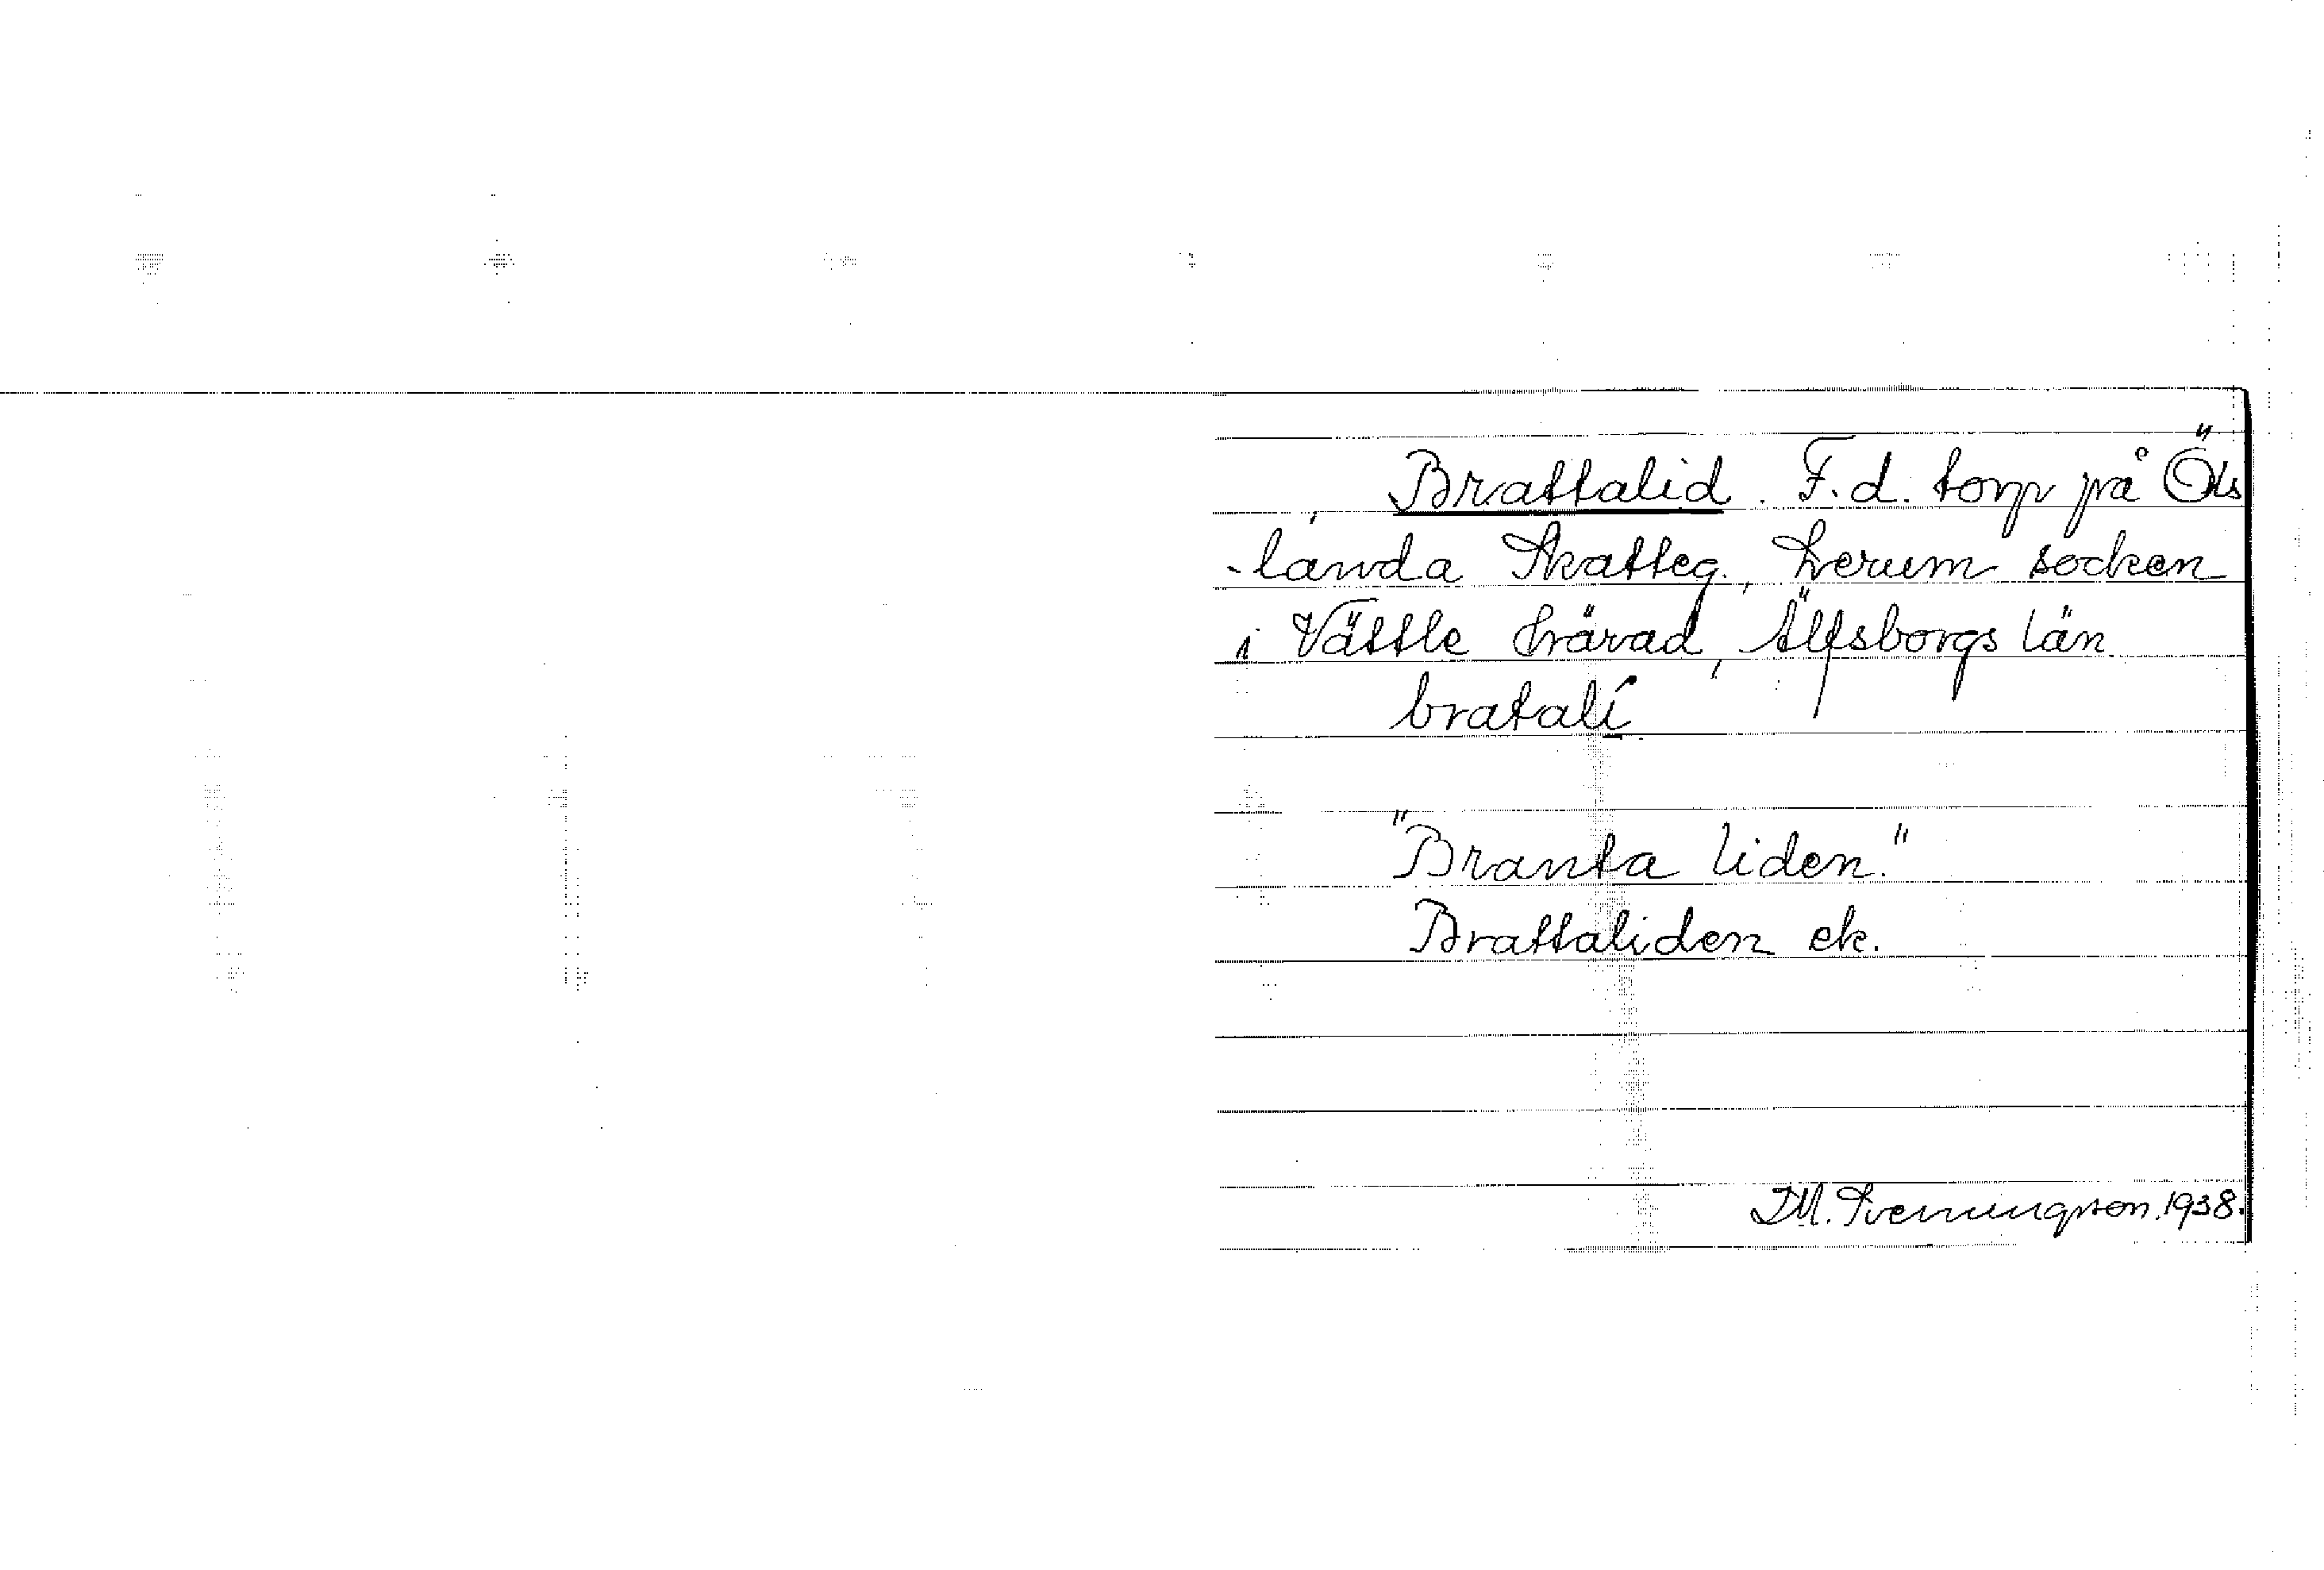 Brattalid. F.d. torp på Öls
-landa Skatteg., Lerum socken
i Vättle härad, Älfsborgs län
bratalí
"Branta liden."
Brattaliden ek.
D.M. Svenningson. 1938.